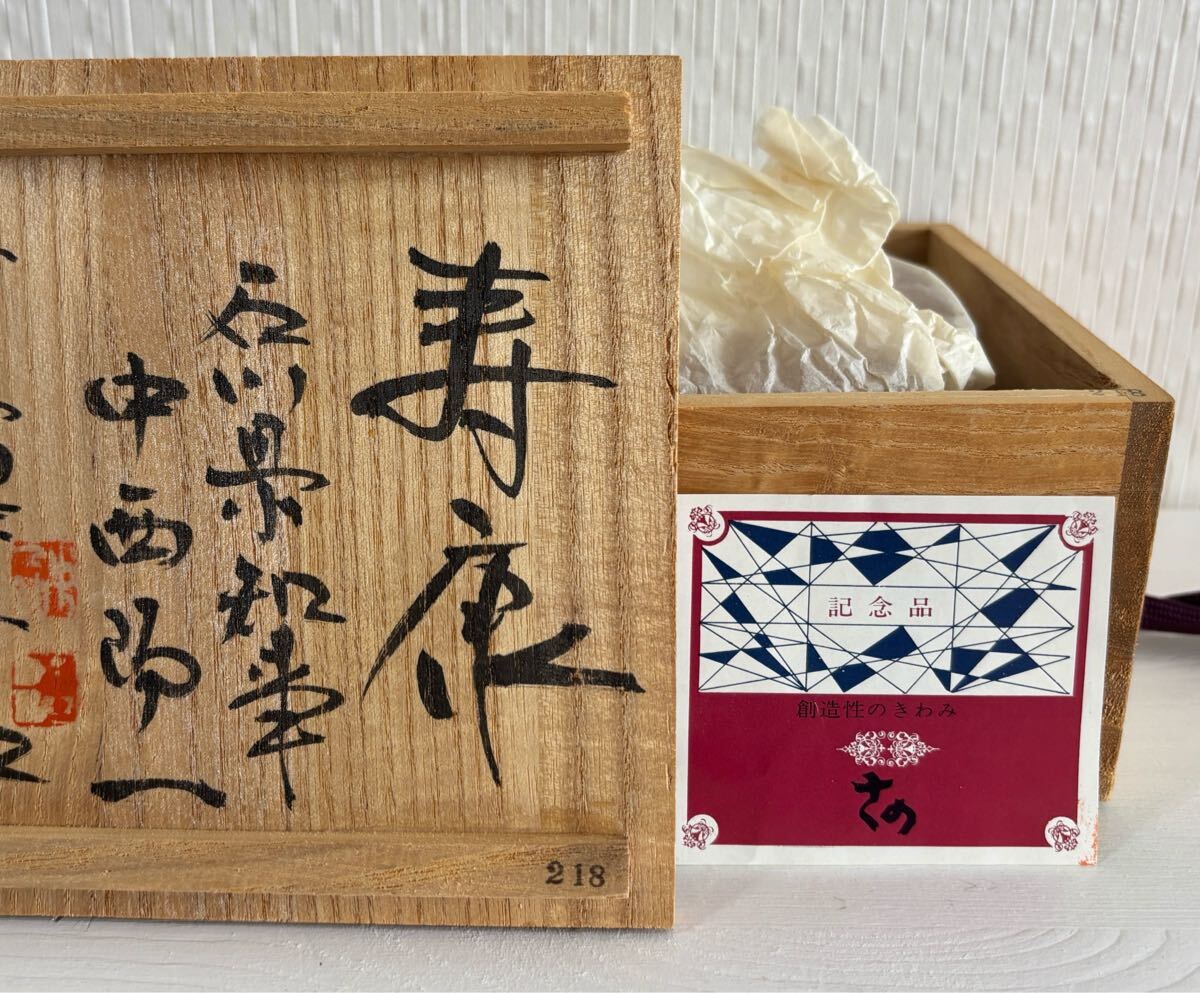 寿康
石川県知事
中西陽一
218
記念品
創造性のきわみ
さの